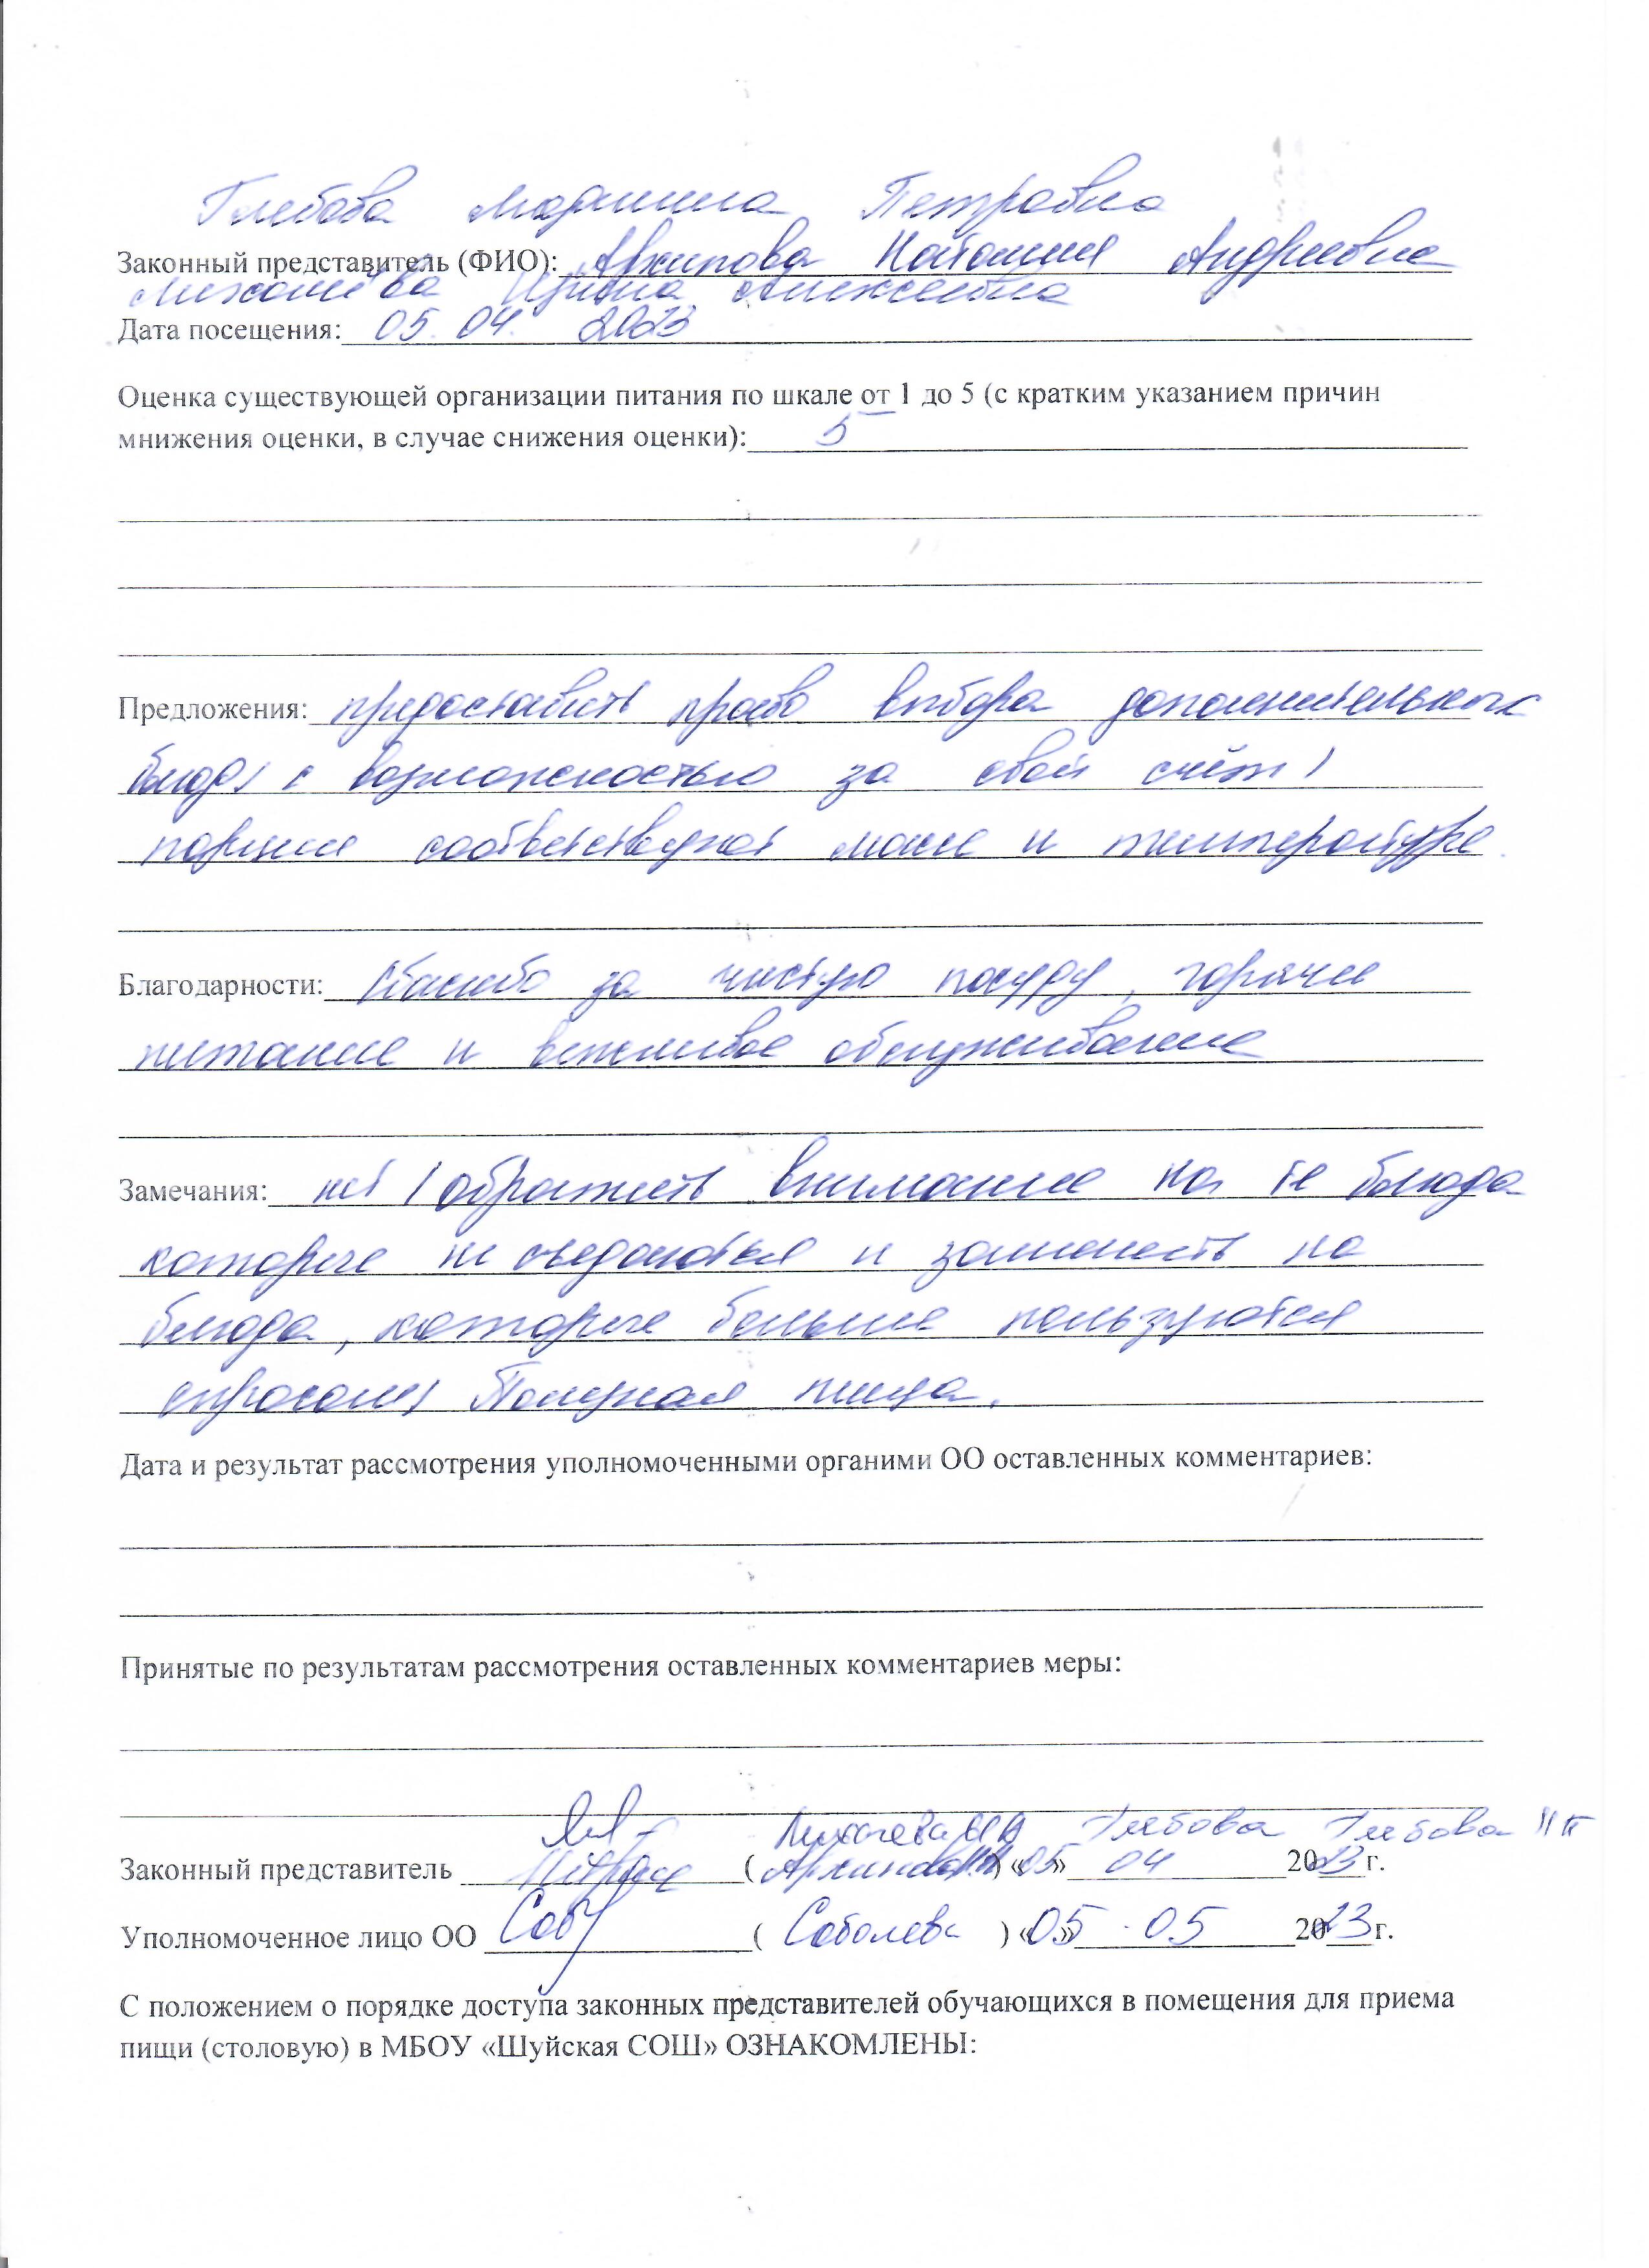 Глебова Марина Петровна
Законный представитель (ФИО): Архипова Наталия Андреевна
Ирина Алексеевна
Дата посещения: 05. 04. 2023
Оценка существующей организации питания по шкале от 1 до 5 (с кратким указанием причин
мнижения оценки, в случае снижения оценки): 5
Предложения: предоставить право выбора дополнительных
блюд) с возможностью за свой счёт)
порции соответствуют массе и температуре
Благодарности: Спасибо за чистую посуду, горячее
питание и вежливое обслуживание
Замечания: нет (обратить внимание на те блюда
которые не съедаются и заменить на
блюда, которые больше пользуются
спросом) Полезная пища.
Дата и результат рассмотрения уполномоченными органими ОО оставленных комментариев:
Принятые по результатам рассмотрения оставленных комментариев меры:
Глебова Глебова
Законный представитель ( Архипова ) «05» 04 2023 г.
Уполномоченное лицо ОО Соб ( Соболева ) «05» 05 2023 г.
С положением о порядке доступа законных представителей обучающихся в помещения для приема
пищи (столовую) в МБОУ «Шуйская СОШ» ОЗНАКОМЛЕНЫ: